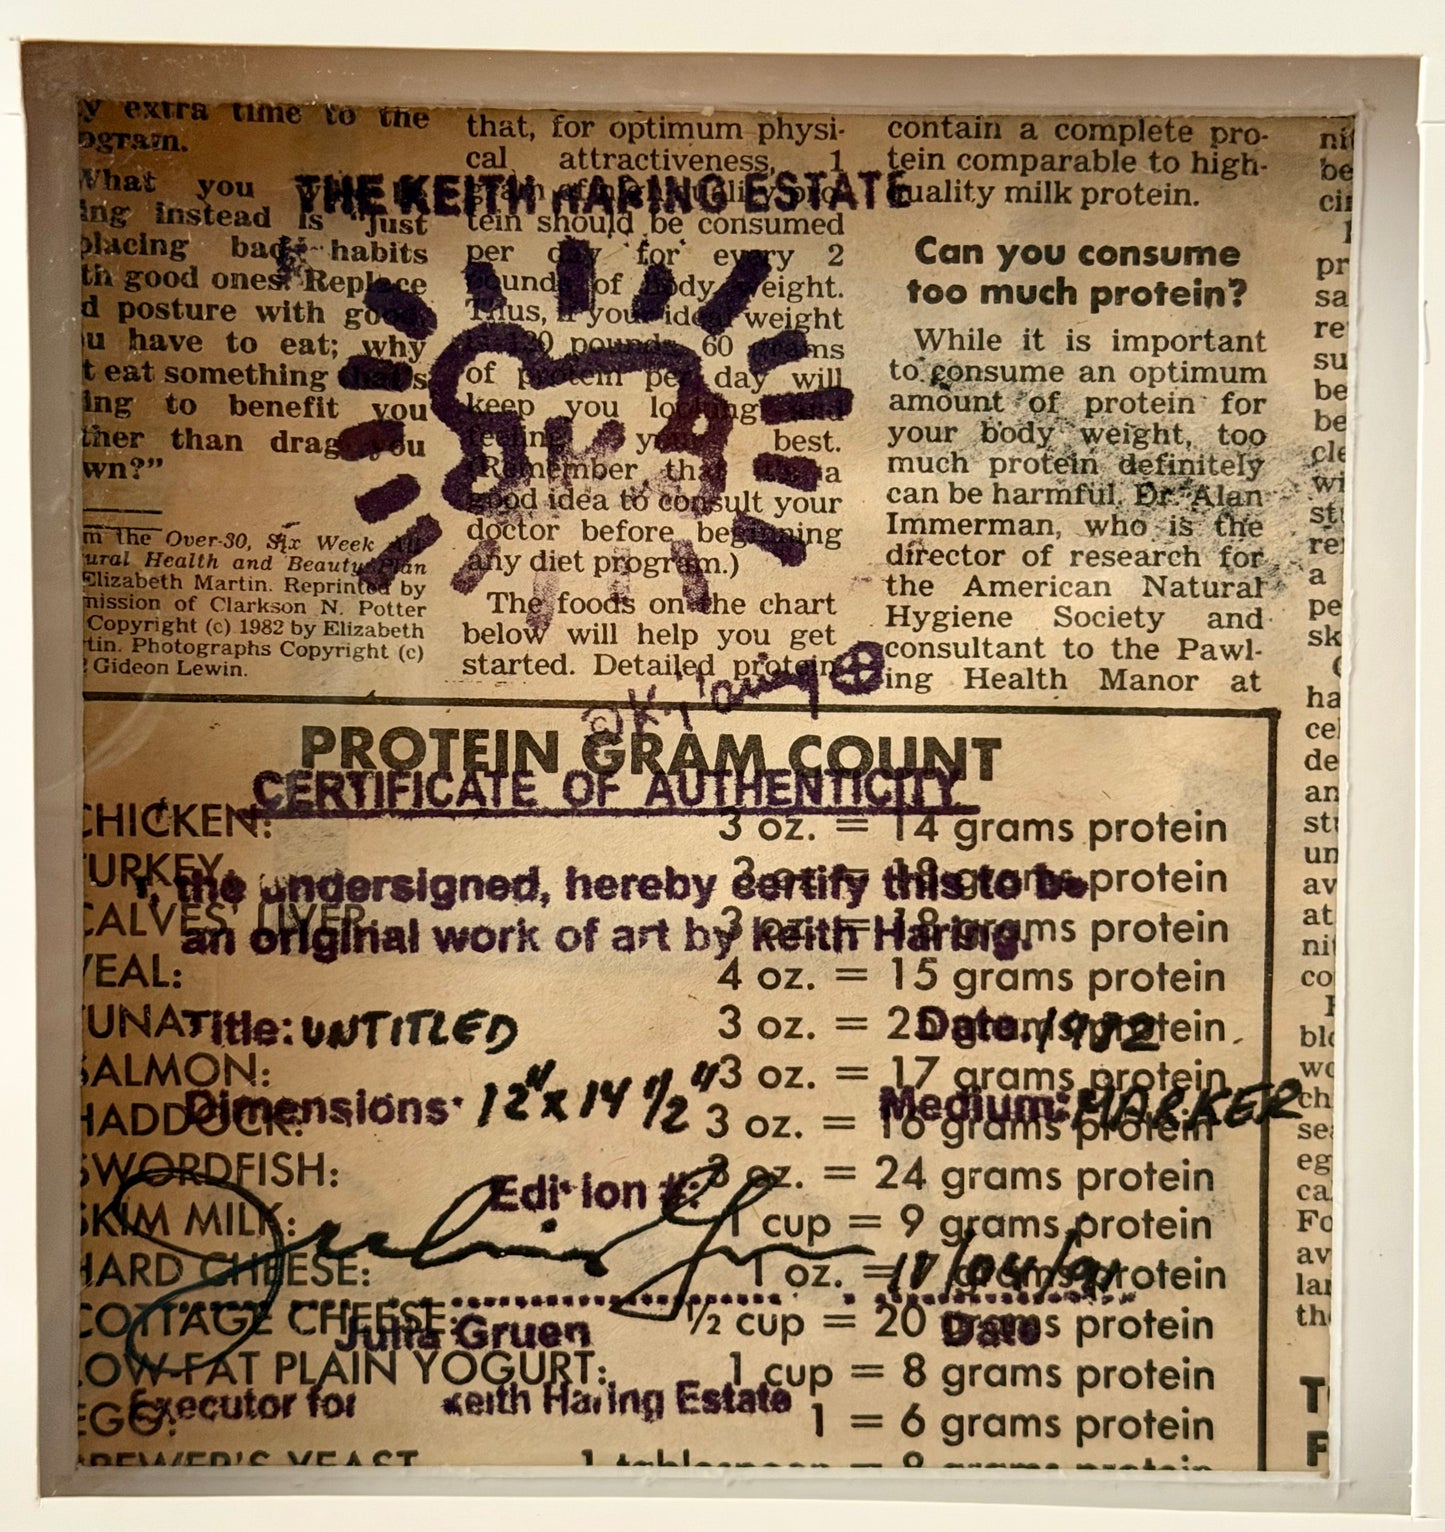 y extra time to the
ogram.
What you
ing instead is "Just
placing bad habits
th good ones. Replace
d posture with good
u have to eat; why
t eat something that's
ing to benefit you
ther than drag you
wn?"
m the Over-30, Six Week All
ural Health and Beauty Plan
Elizabeth Martin. Reprinted by
mission of Clarkson N. Potter
Copyright (c) 1982 by Elizabeth
tin. Photographs Copyright (c)
Gideon Lewin.
that, for optimum physi-
cal attractiveness, 1
tein should be consumed
per day for every 2
pounds of body weight.
Thus, if your ideal weight
is 120 pounds, 60 grams
of protein per day will
keep you looking and
feeling your best.
(Remember, that it's a
good idea to consult your
doctor before beginning
any diet program.)
The foods on the chart
below will help you get
started. Detailed protein
contain a complete pro-
tein comparable to high-
quality milk protein.
Can you consume
too much protein?
While it is important
to consume an optimum
amount of protein for
your body weight, too
much protein definitely
can be harmful. Dr. Alan
Immerman, who is the
director of research for
the American Natural
Hygiene Society and
consultant to the Pawl-
ing Health Manor at
THE KEITH HARING ESTATE
© K. Haring
PROTEIN GRAM COUNT
CERTIFICATE OF AUTHENTICITY
CHICKEN: 3 oz. = 14 grams protein
TURKEY: 3 oz. = 18 grams protein
I, the undersigned, hereby certify this to be
CALVES' LIVER: 3 oz. = 18 grams protein
an original work of art by Keith Haring.
VEAL: 4 oz. = 15 grams protein
TUNA: 3 oz. = grams protein
Title: UNTITLED Date: 1982
SALMON: 3 oz. = 17 grams protein
Dimensions: 12" x 14 1/2" Medium: MARKER
HADDOCK: 3 oz. = 16 grams protein
SWORDFISH: 3 oz. = 24 grams protein
Edition #:
SKIM MILK: 1 cup = 9 grams protein
HARD CHEESE: 1 oz. = grams protein
COTTAGE CHEESE: 1/2 cup = 20 grams protein
Julia Gruen Date
LOW-FAT PLAIN YOGURT: 1 cup = 8 grams protein
Executor for Keith Haring Estate
EGG: 1 = 6 grams protein
BREWER'S YEAST 1 tablespoon = 8 grams protein